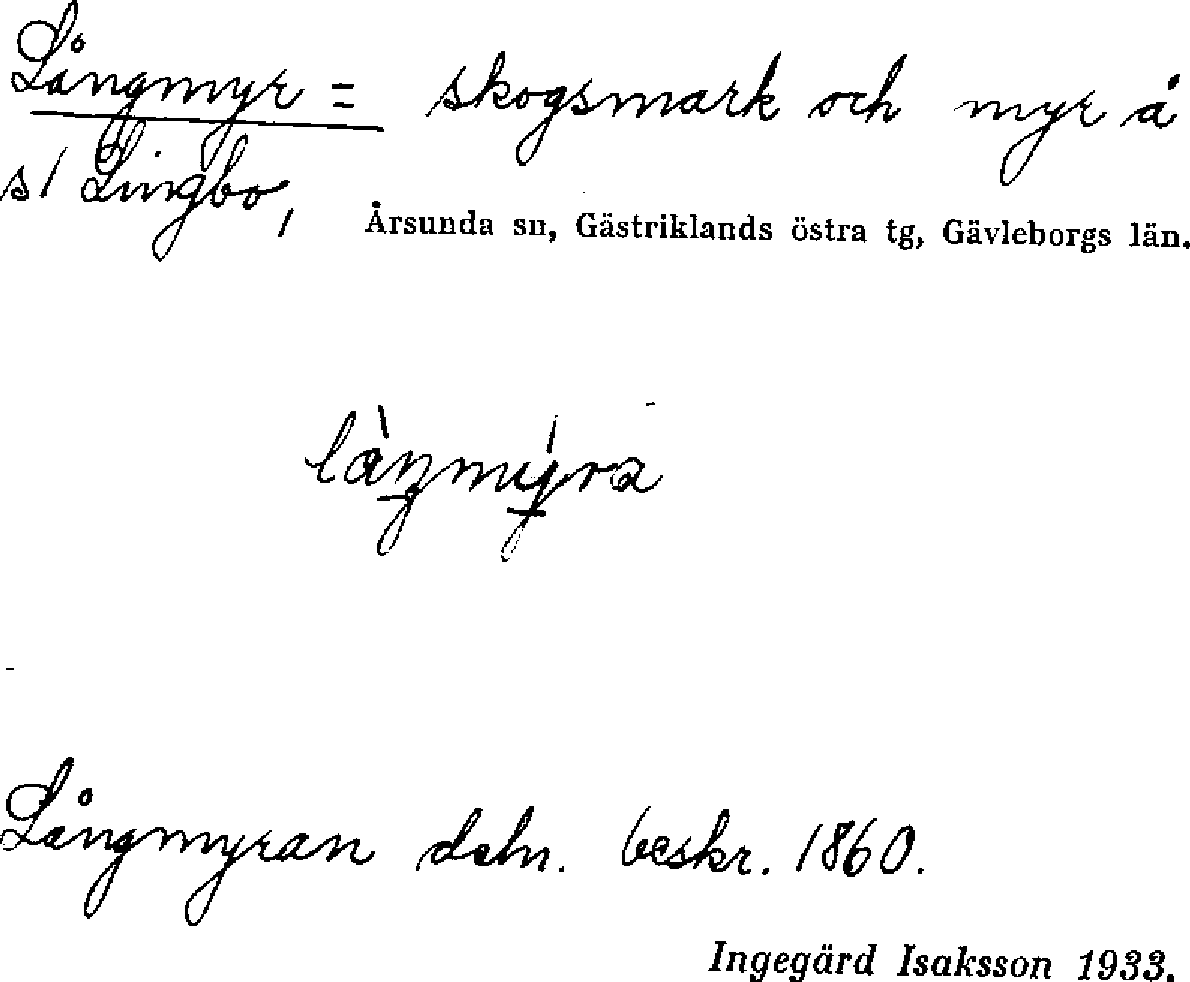 Långmyr = skogsmark och myr å
s/ Lingbo,
Årsunda sn, Gästriklands östra tg, Gävleborgs län.
Långmyran deln. beskr. 1860.
Ingegärd Isaksson 1933.